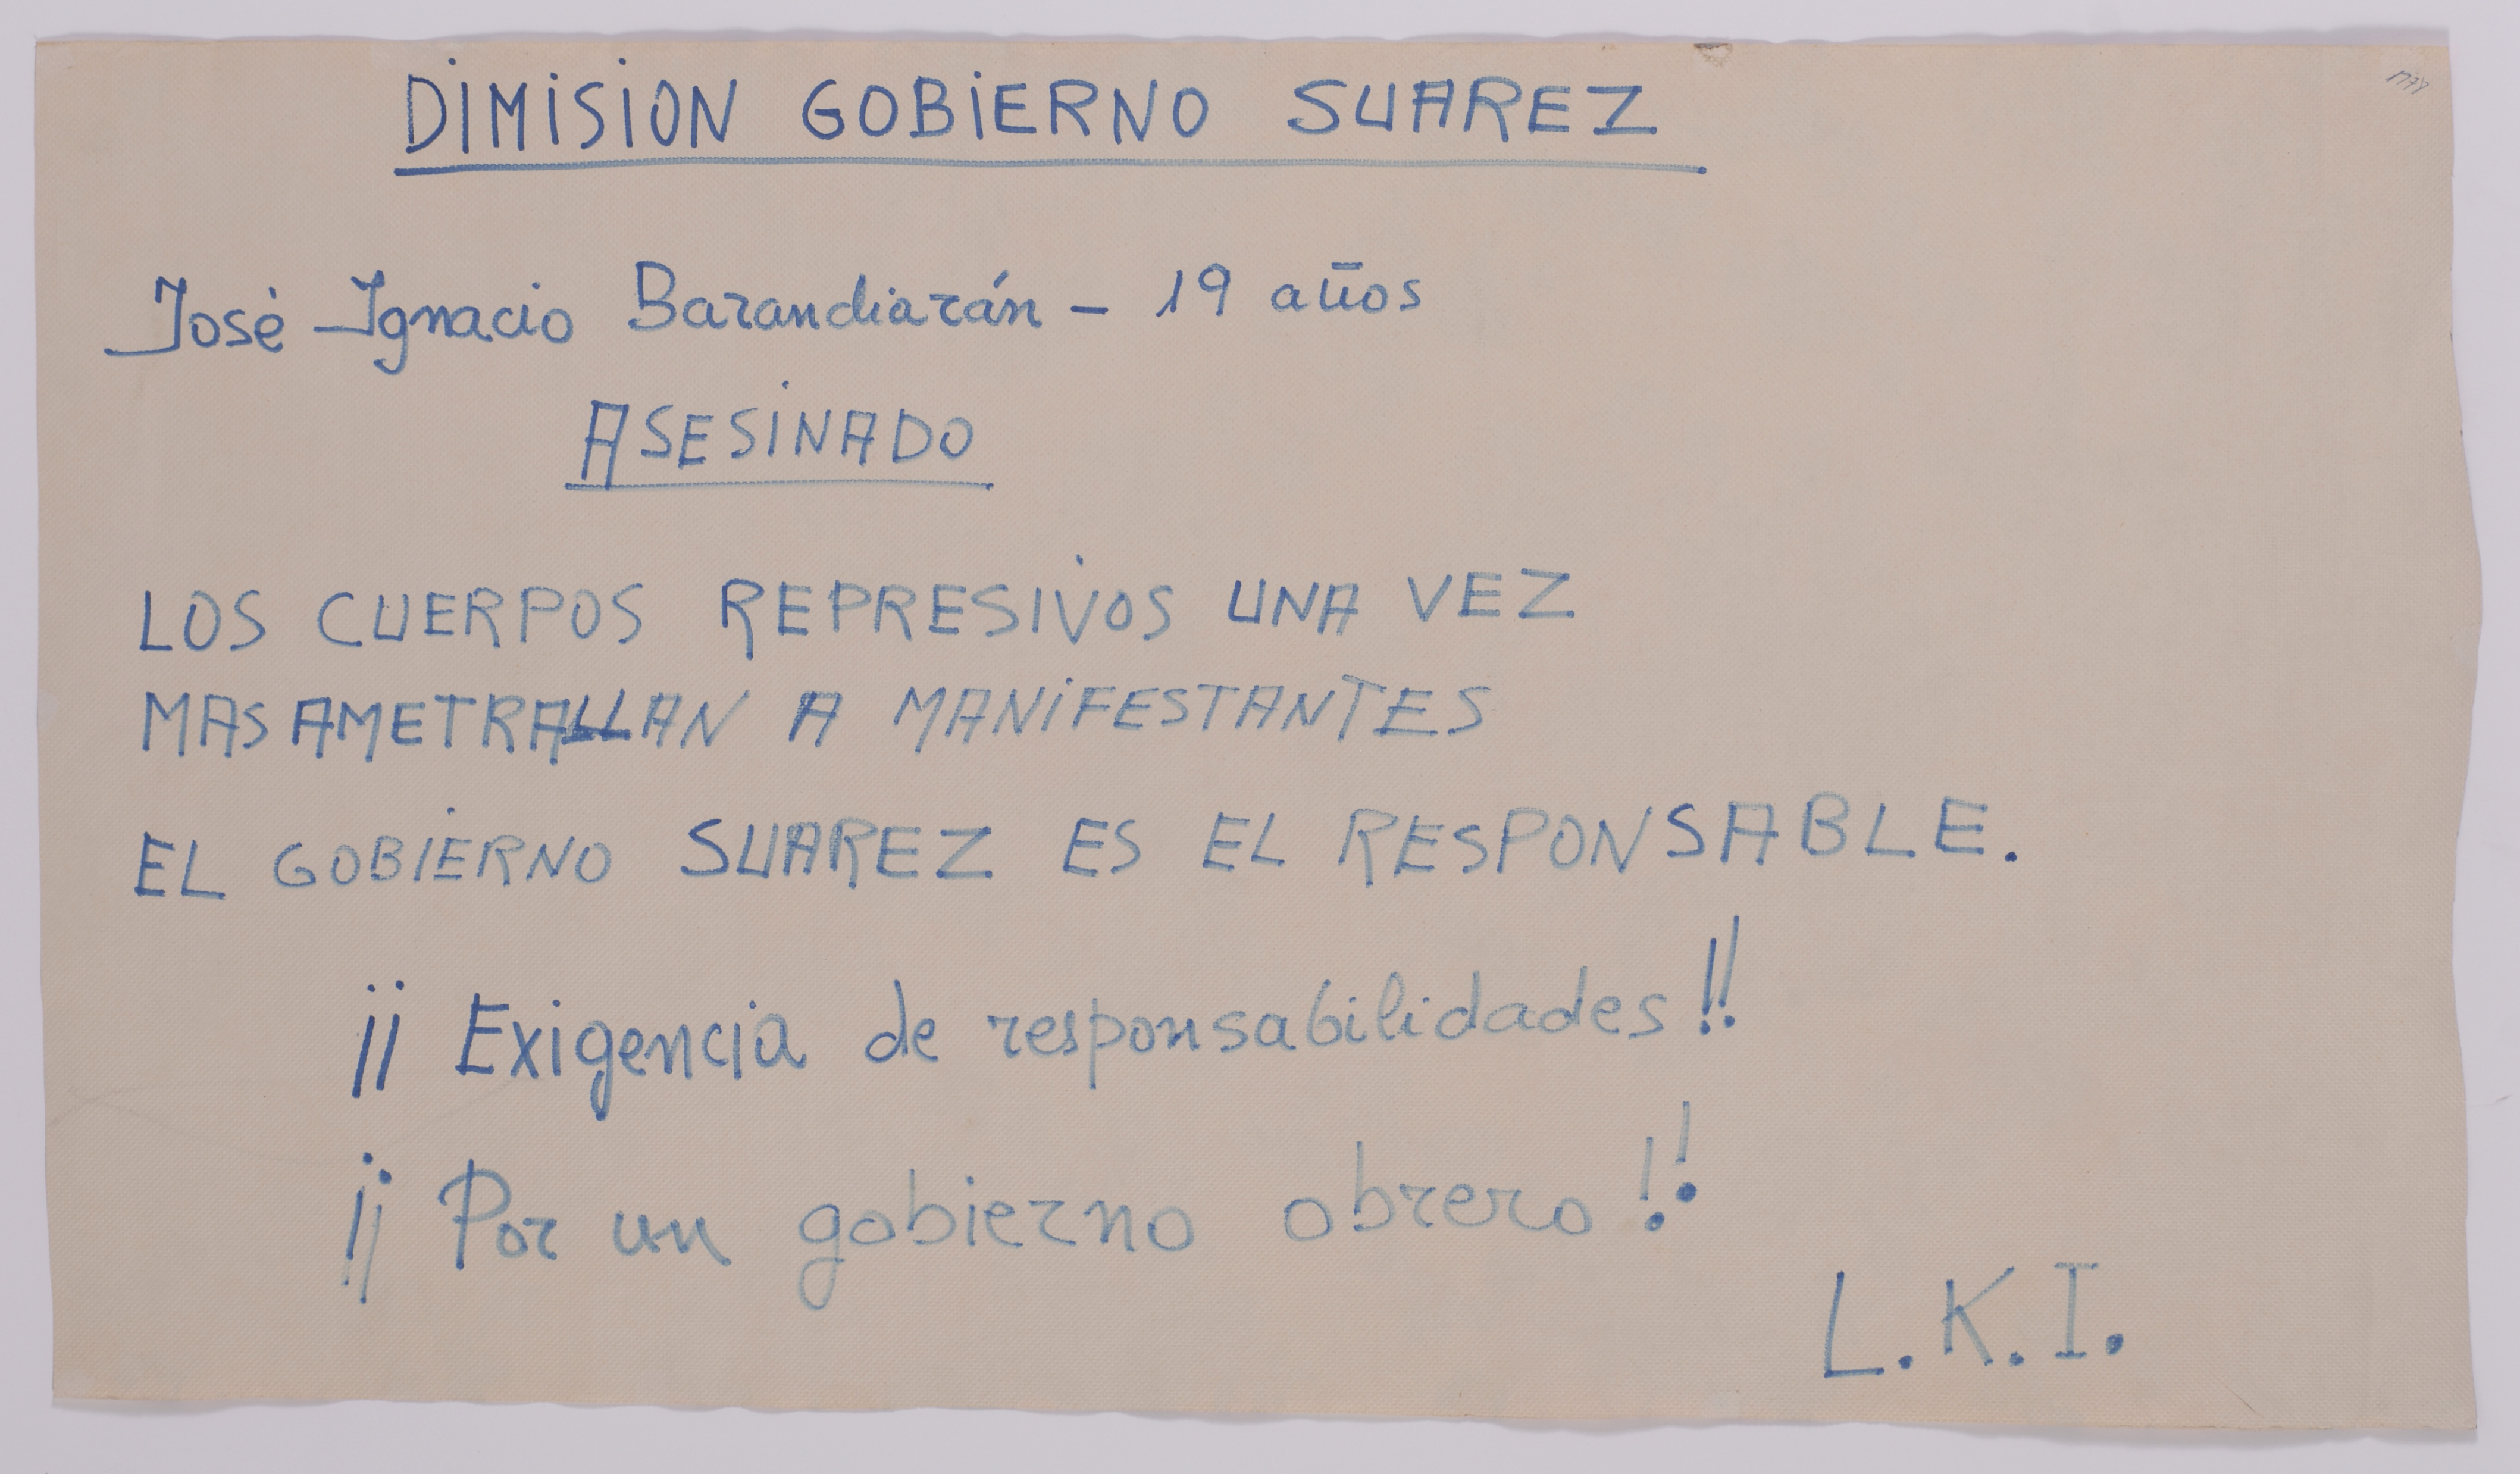 DIMISION GOBIERNO SUAREZ
José Ignacio Barandiarán - 19 años
ASESINADO
LOS CUERPOS REPRESIVOS UNA VEZ
MAS AMETRALLAN A MANIFESTANTES
EL GOBIERNO SUAREZ ES EL RESPONSABLE.
¡¡ Exigencia de responsabilidades !!
¡¡ Por un gobierno obrero !!
L.K.I.